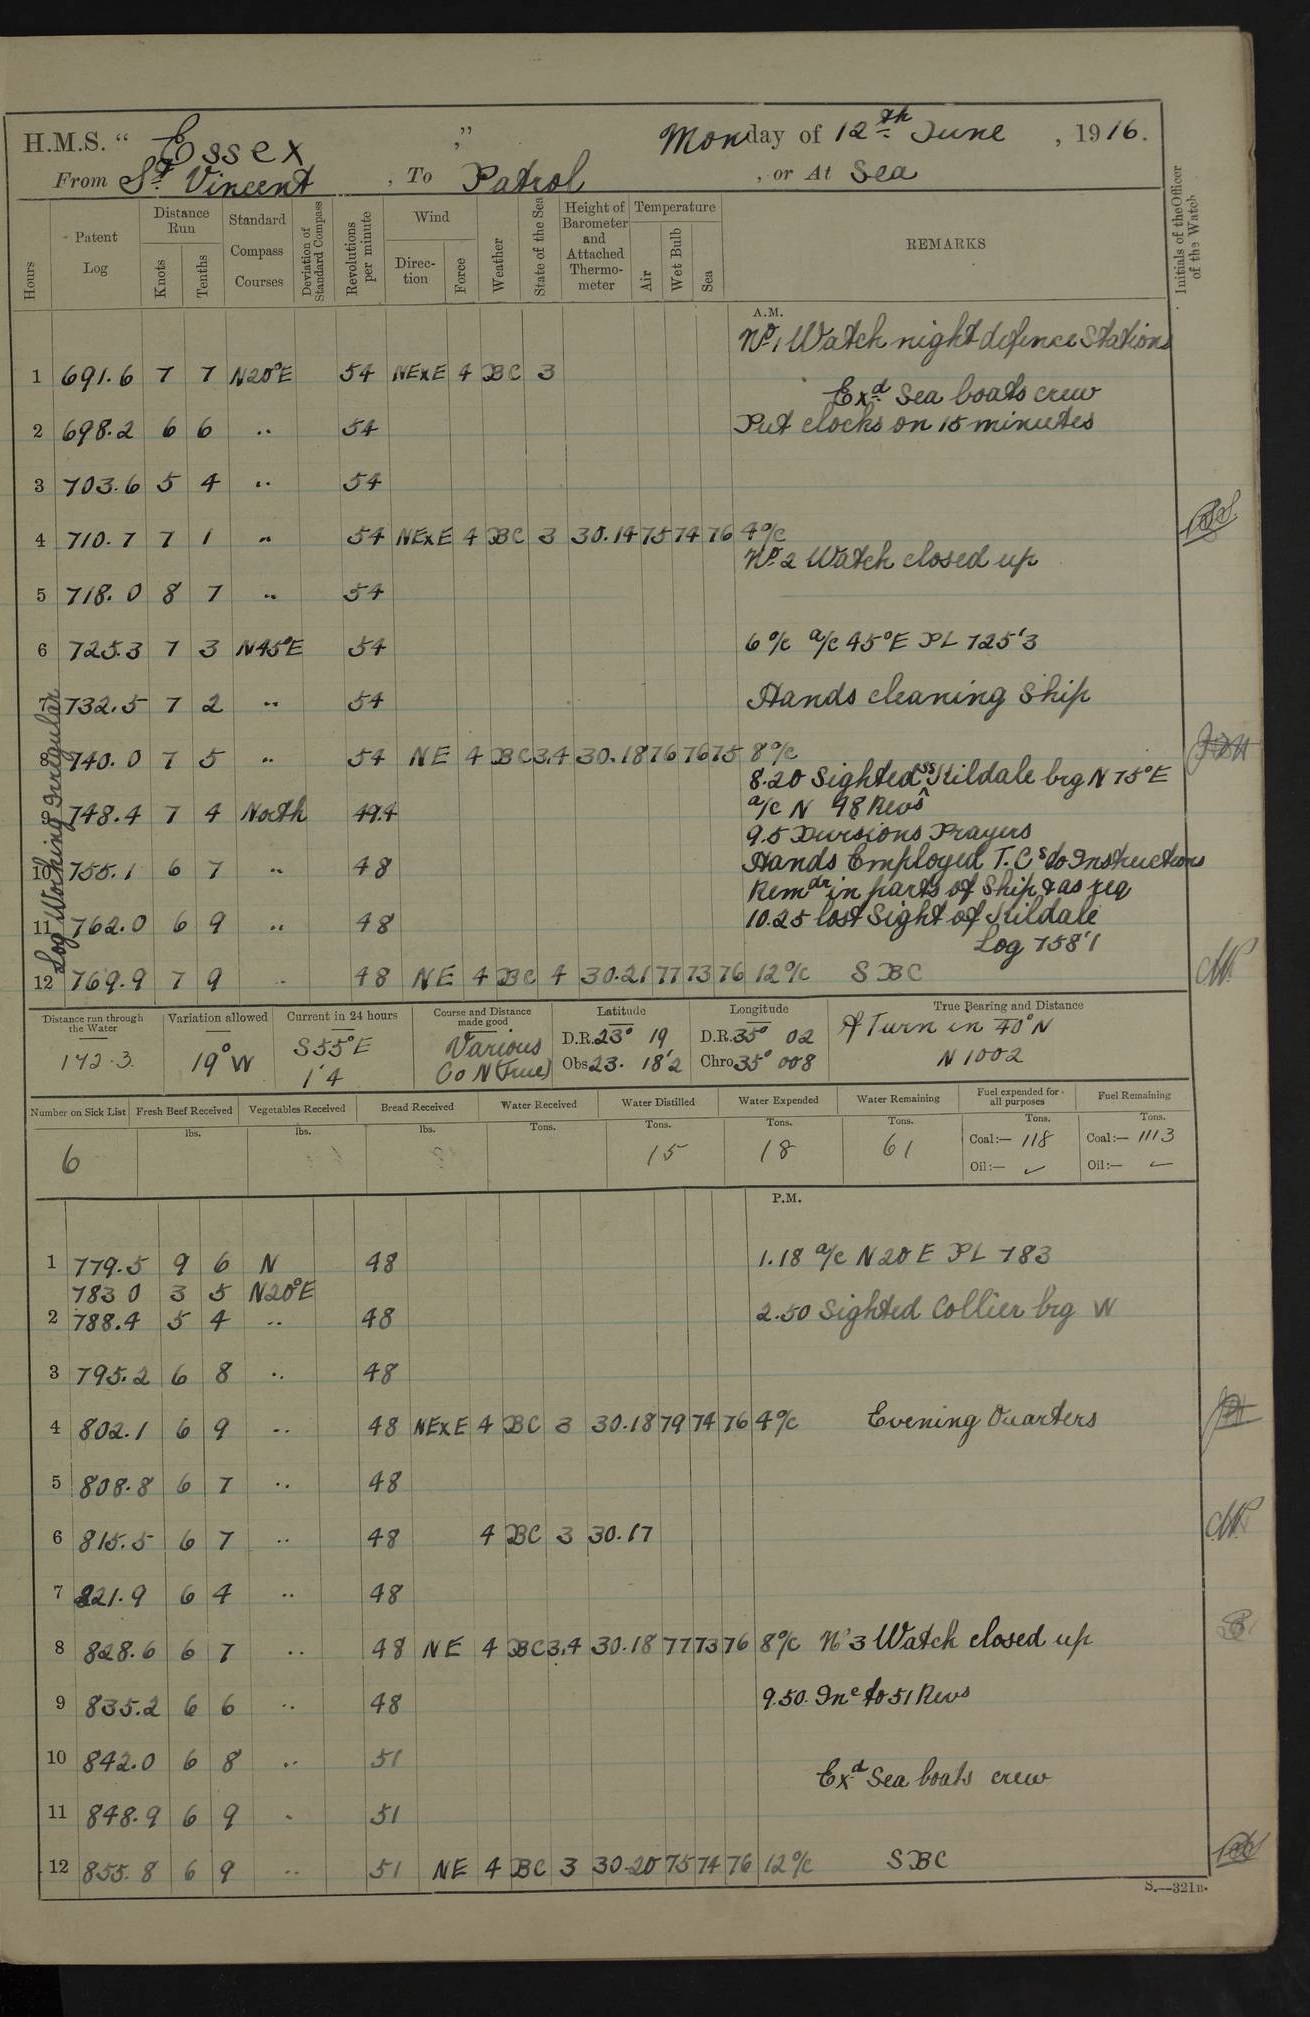 H.M.S. " Essex " Monday of 12th June , 1916.
From St. Vincent , To Patrol , or At Sea
Hours
Patent Log
Distance Run
Knots
Tenths
Standard Compass Courses
Deviation of Standard Compass
Revolutions per minute
Wind
Direction
Force
Weather
State of the Sea
Height of Barometer and Attached Thermometer
Temperature
Air
Wet Bulb
Sea
REMARKS
Initials of the Officer of the Watch
A.M.
No. 1 Watch night defence Stations
1 691.6 7 7 N20°E 54 NExE 4 BC 3
Exd. Sea boats crew
2 698.2 6 6 .. 54 Put clocks on 15 minutes
3 703.6 5 4 .. 54
4 710.7 7 1 .. 54 NExE 4 BC 3 30.14 75 74 76 4 o/c
No. 2 Watch closed up
5 718.0 8 7 .. 54
6 725.3 7 3 N45°E 54 6 o/c a/c 45°E PL 725'3
7 732.5 7 2 .. 54 Hands cleaning Ship
8 740.0 7 5 .. 54 NE 4 BC 3.4 30.18 76 76 75 8 o/c
8.20 Sighted SS Kildale brg N 75°E
a/c N 48 Revs
9 748.4 7 4 North 49.4
9.5 Divisions Prayers
10 755.1 6 7 .. 48 Hands Employed T.Cs to Instructions
Remdr in parts of Ship & as req
11 762.0 6 9 .. 48 10.25 lost Sight of Kildale
Log 758'1
12 769.9 7 9 .. 48 NE 4 BC 4 30.21 77 73 76 12 o/c SBC
Log Working Irregular
Distance run through the Water
172.3
Variation allowed
19° W
Current in 24 hours
S 55° E
1'4
Course and Distance made good
Various
Co N (True)
Latitude
D.R. 23° 19
Obs 23. 18'2
Longitude
D.R. 35° 02
Chro 35° 008
True Bearing and Distance
A Turn in 40° N
N 1002
Number on Sick List
6
Fresh Beef Received
lbs.
Vegetables Received
lbs.
Bread Received
lbs.
Water Received
Tons.
Water Distilled
Tons.
15
Water Expended
Tons.
18
Water Remaining
Tons.
61
Fuel expended for all purposes
Tons.
Coal:— 118
Oil:— ✓
Fuel Remaining
Tons.
Coal:— 1113
Oil:—
P.M.
1 779.5 9 6 N 48 1.18 a/c N20E PL 783
783 0 3 5 N20°E
2 788.4 5 4 .. 48 2.50 Sighted Collier brg W
3 795.2 6 8 .. 48
4 802.1 6 9 .. 48 NExE 4 BC 3 30.18 79 74 76 4 o/c Evening Quarters
5 808.8 6 7 .. 48
6 815.5 6 7 .. 48 4 BC 3 30.17
7 821.9 6 4 .. 48
8 828.6 6 7 .. 48 NE 4 BC 3.4 30.18 77 73 76 8 o/c No 3 Watch closed up
9 835.2 6 6 .. 48 9.50. Inc to 51 Revs
10 842.0 6 8 .. 51
Exd Sea boats crew
11 848.9 6 9 .. 51
12 855.8 6 9 .. 51 NE 4 BC 3 30.20 75 74 76 12 o/c SBC
S.—321B.